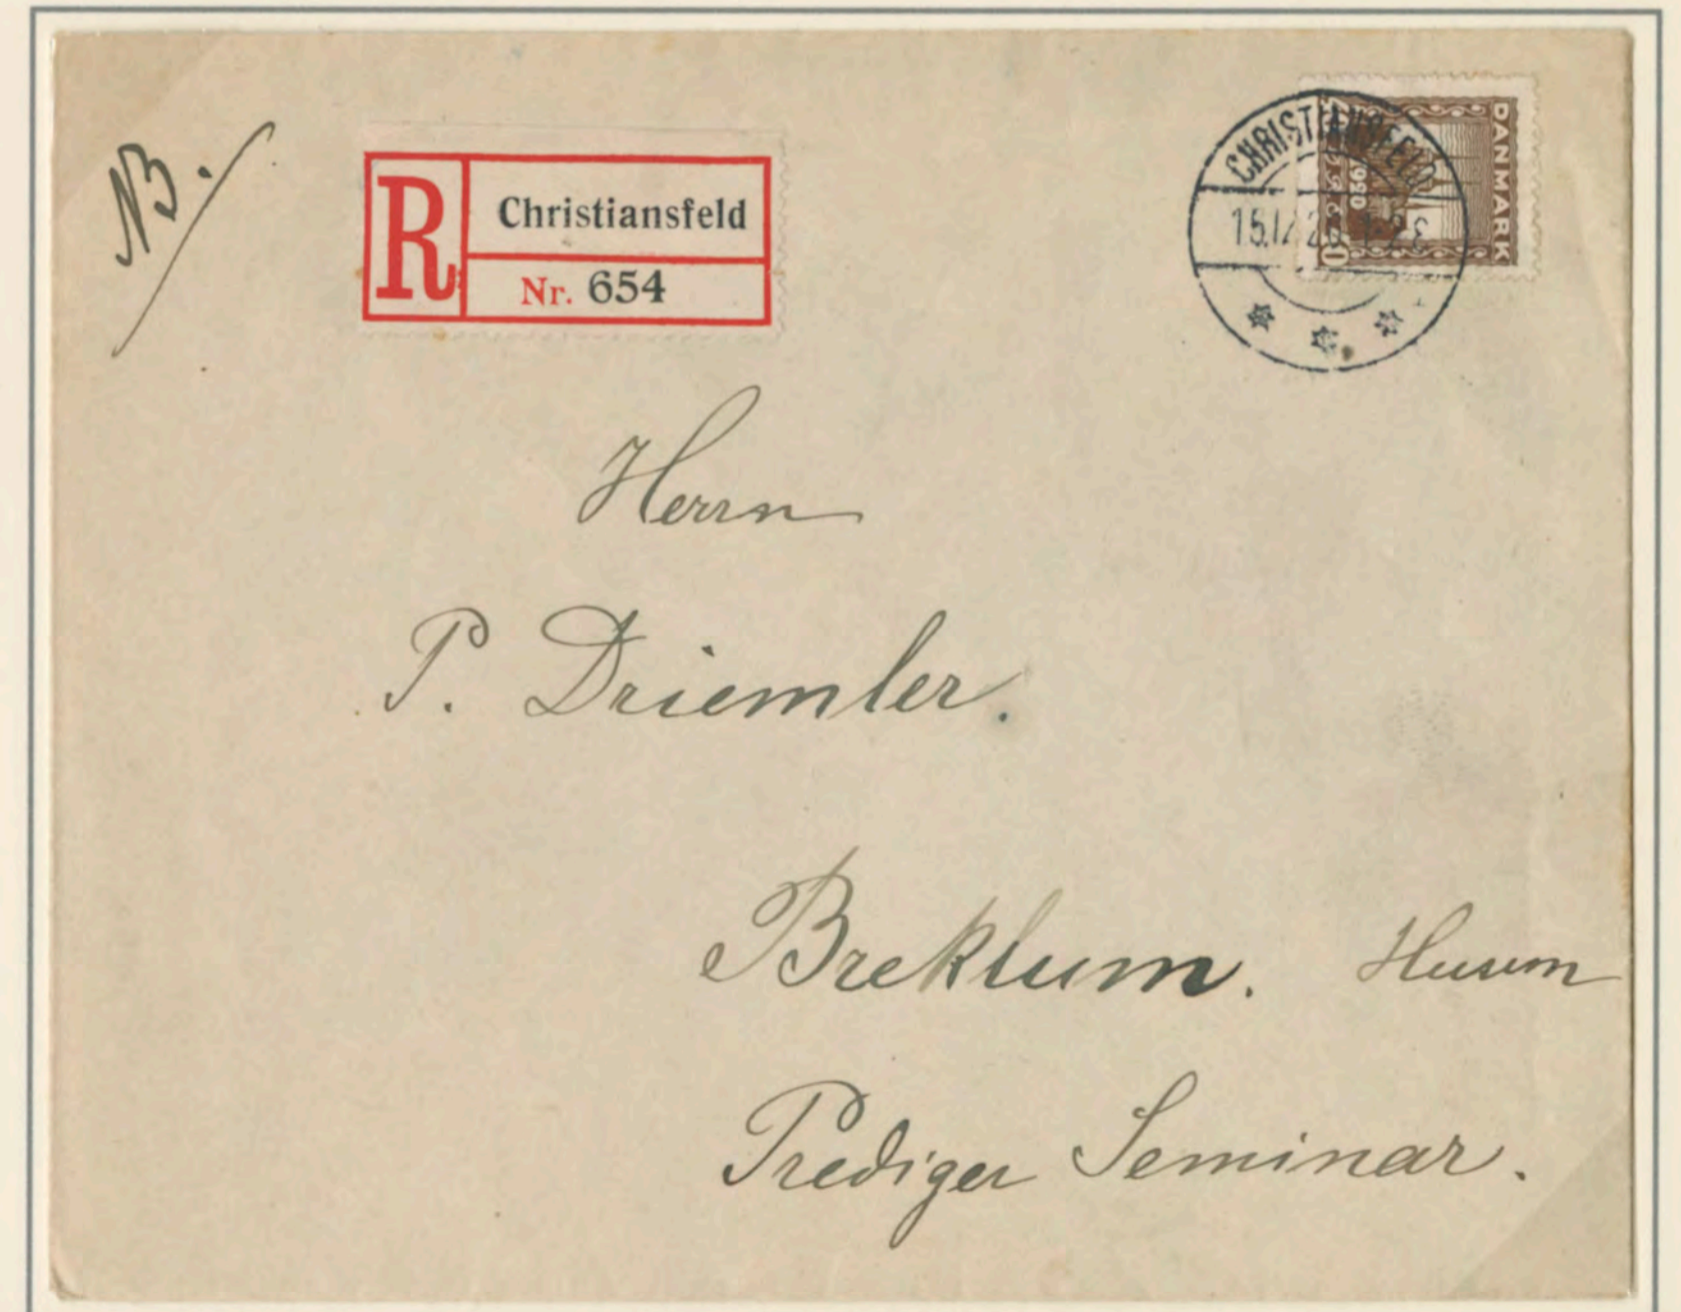 NB.
R
Christiansfeld
Nr. 654
CHRISTIANSFELD
DANMARK
1920
Herrn
P. Driemler.
Breklum. Husum
Prediger Seminar.